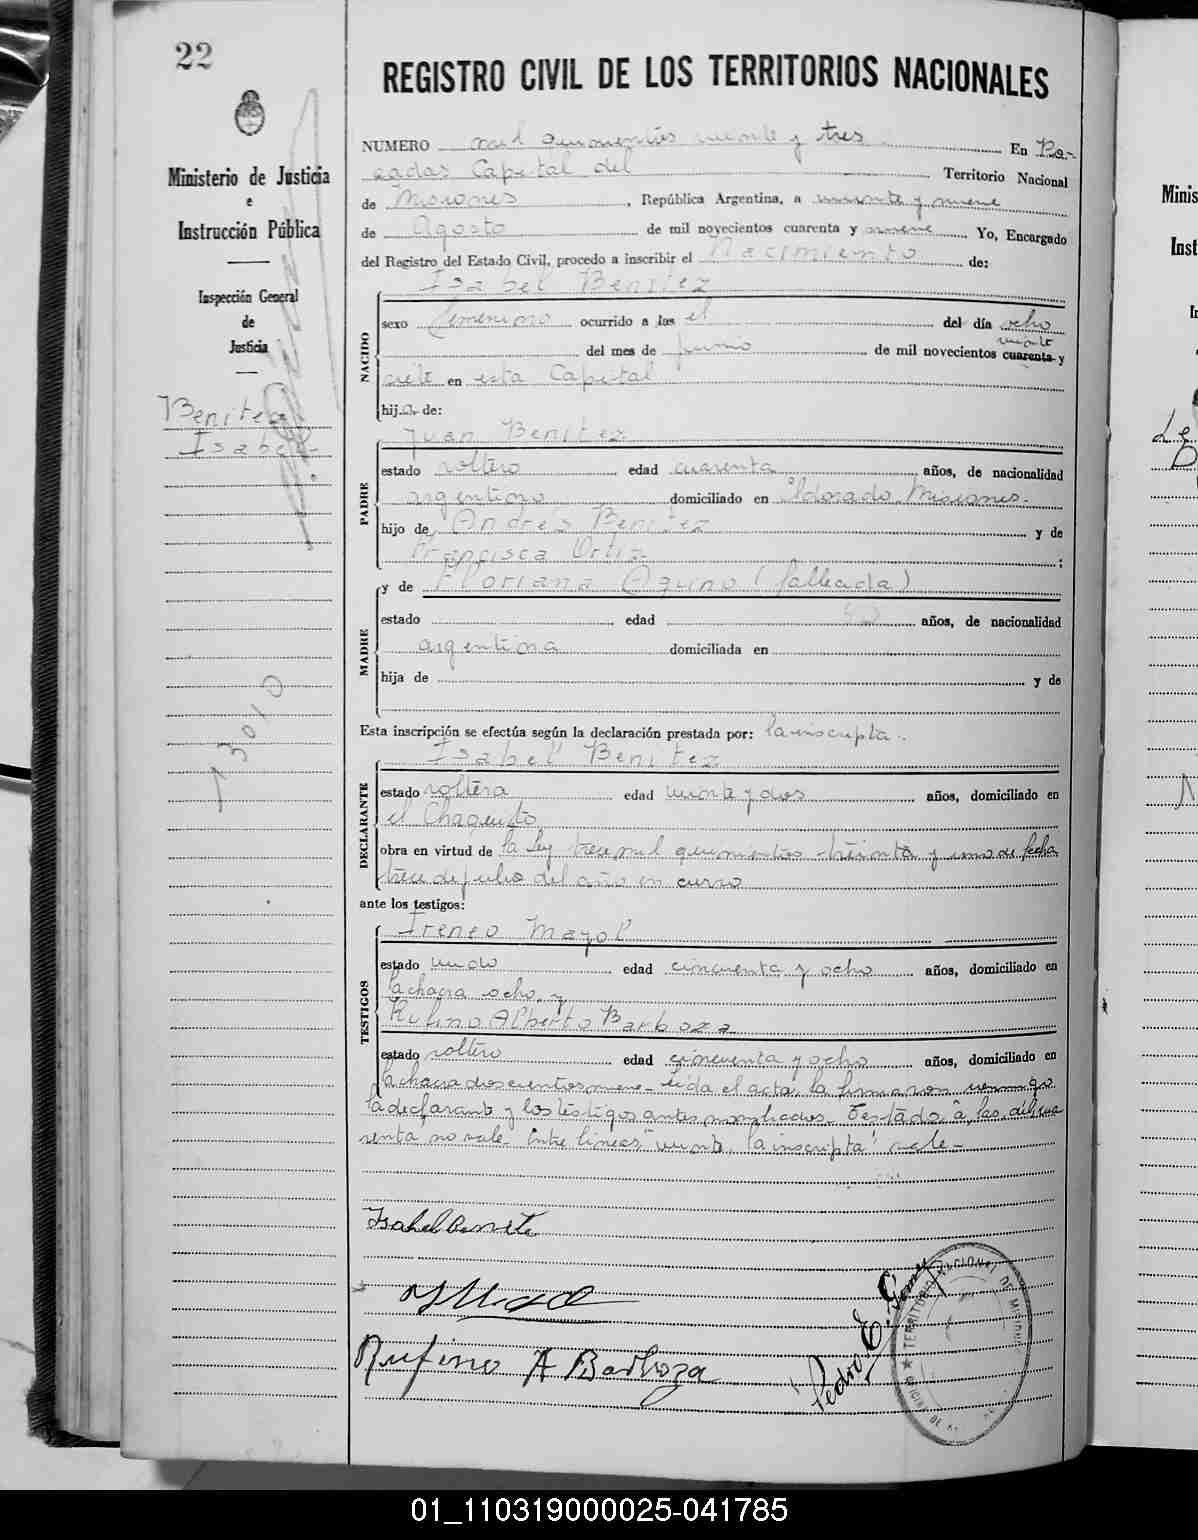 22
REGISTRO CIVIL DE LOS TERRITORIOS NACIONALES
Ministerio de Justicia
e
Instrucción Pública
Inspección General
de
Justicia
Benitez
Isabel
13010
NUMERO mil quinientos veinte y tres En Po-
sadas Capital del Territorio Nacional
de Misiones, República Argentina, a veinte y nueve
de Agosto de mil novecientos cuarenta y nueve Yo, Encargado
del Registro del Estado Civil, procedo a inscribir el Nacimiento de:
NACIDO
Isabel Benitez
sexo femenino ocurrido a las el del día ocho
veinte
del mes de junio de mil novecientos cuarenta y
siete en esta Capital
hija de:
PADRE
Juan Benitez
estado soltero edad cuarenta años, de nacionalidad
argentino domiciliado en Eldorado Misiones.
hijo de Andrés Benitez y de
Francisca Ortiz ;
MADRE
y de Floriana Aquino (fallecida)
estado edad años, de nacionalidad
argentina domiciliada en
hija de y de
Esta inscripción se efectúa según la declaración prestada por: la inscripta.
DECLARANTE
Isabel Benitez
estado soltera edad veinte y dos años, domiciliado en
el Chaquito
obra en virtud de la ley trece mil quinientos treinta y uno de fecha
trece de julio del año en curso
ante los testigos:
TESTIGOS
Ireneo Mayol
estado viudo edad cincuenta y ocho años, domiciliado en
la chacra ocho, y
Rufino Alberto Barboza
estado soltero edad cincuenta y ocho años, domiciliado en
la chacra doscientos nueve - Leída el acta, la firmaron conmigo
la declarante y los testigos antes nombrados. Testado "a las, del cua
renta" no vale. Entre líneas "veinte, la inscripta" vale -
Isabel Benite
Rufino A Barboza
Pedro E. Gomez
TERRITORIO NACIONAL DE MISIONES
01_110319000025-041785